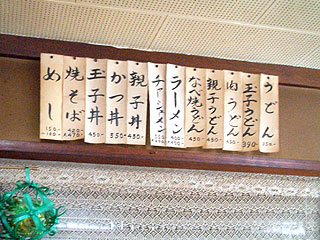 うどん
玉子うどん
390
肉うどん
450
親子うどん
なべ焼うどん
ラーメン
チャーシューメン
親子丼
450
かつ丼
550
玉子丼
450
焼そば
めし
150